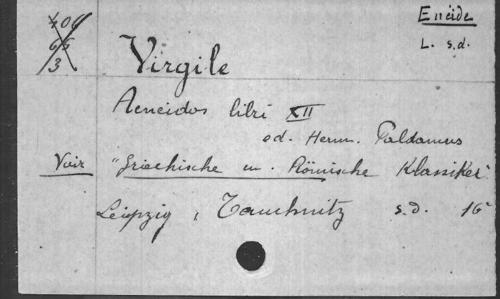 Enéide
L. s.d.
Virgile
Aeneidos libri XII
ed. Herm. Paldamus
Voir "Griechische u. Römische Klassiker"
Leipzig, Tauchnitz s.d. 16°